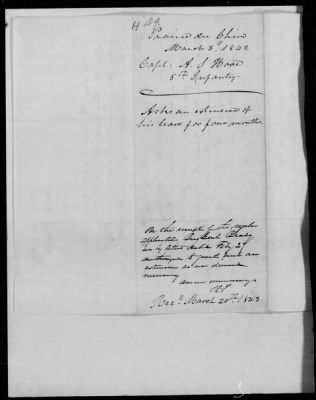 H 49
Prairie du Chien
March 3d 1843
Capt. A. S. Hooe
5th Infantry.
Asks an extension of
his leave for four months.
On the receipt of
application
by letter dated Feby 27
to grant such an
extension as was deemed
necessary
Recd. March 20th 1843